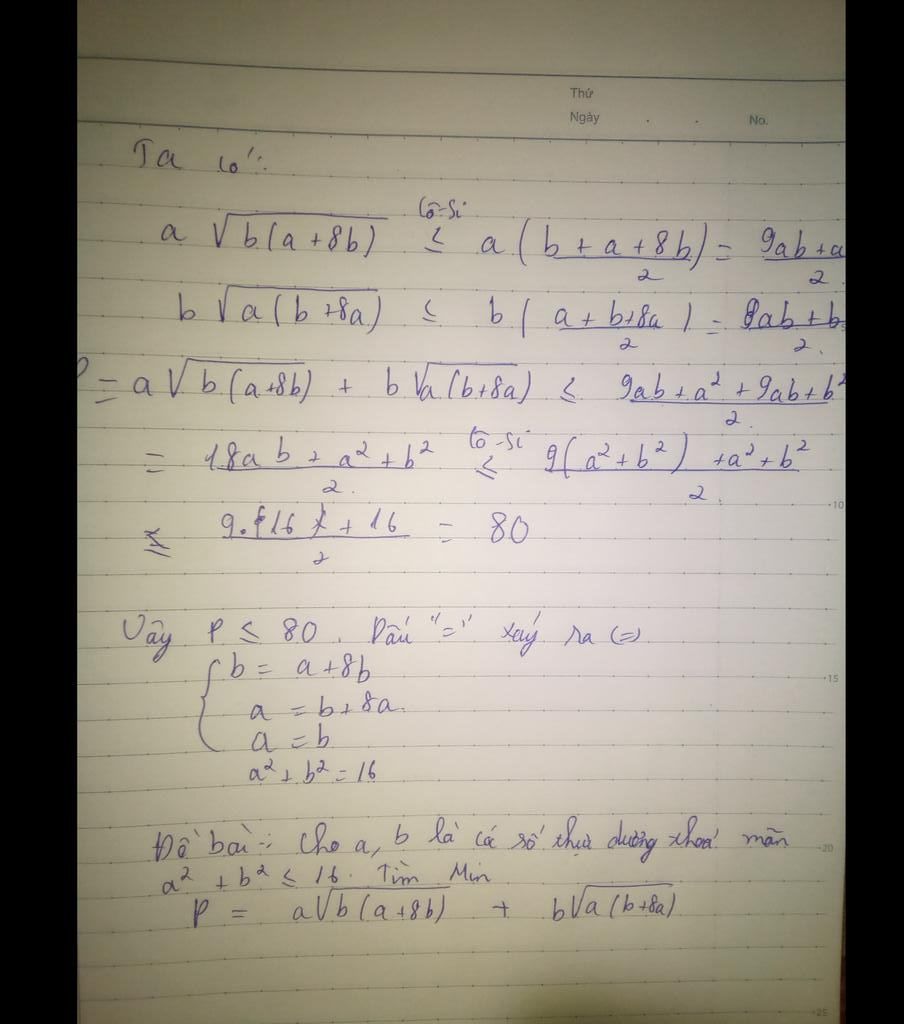 Thứ
Ngày . . No.
Ta có:
a √b(a+8b) ≤ (Cô-Si) a (b + a + 8b)/2 = 9ab + a/2
b √a(b+8a) ≤ b (a + b+8a)/2 = 9ab + b/2.
= a√b(a+8b) + b√a(b+8a) ≤ (9ab + a² + 9ab + b²)/2.
= (18ab + a² + b²)/2. ≤ (Cô-Si) (9(a² + b²) + a² + b²)/2.
10
≤ (9.(16) + 16)/2 = 80
Vậy P ≤ 80. Dấu "=" xảy ra (=)
{ b = a + 8b
15
a = b + 8a.
a = b
a² + b² = 16
Đề bài: Cho a, b là các số thực dương thoả mãn
20
a² + b² ≤ 16. Tìm Min
P = a√b(a+8b) + b√a(b+8a)
25